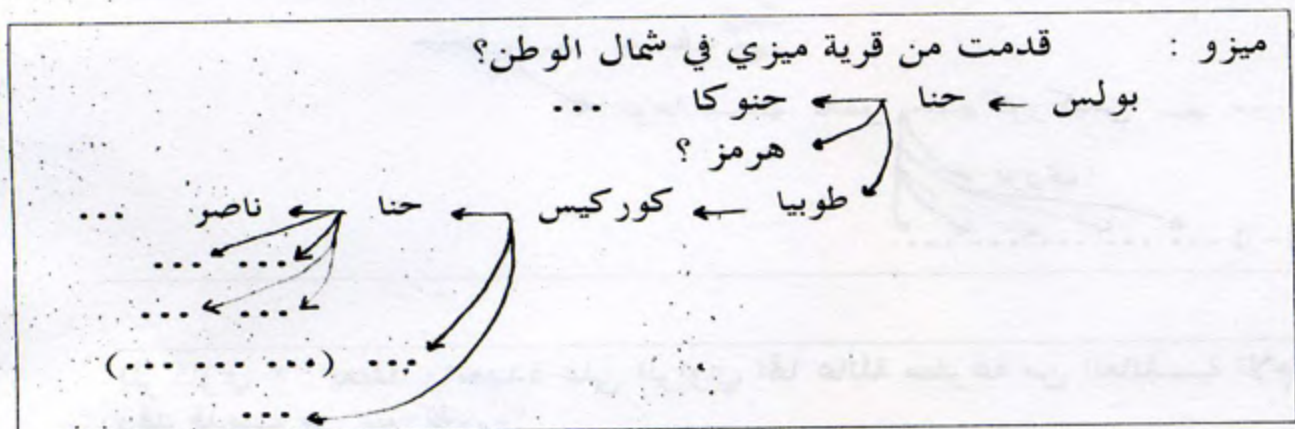 ميزو : قدمت من قرية ميزي في شمال الوطن؟
بولس ← حنا ← حنوكا ...
هرمز ؟
طوبيا ← كوركيس ← حنا ← ناصر ...
... ...
... ...
... (... ... ...)
...